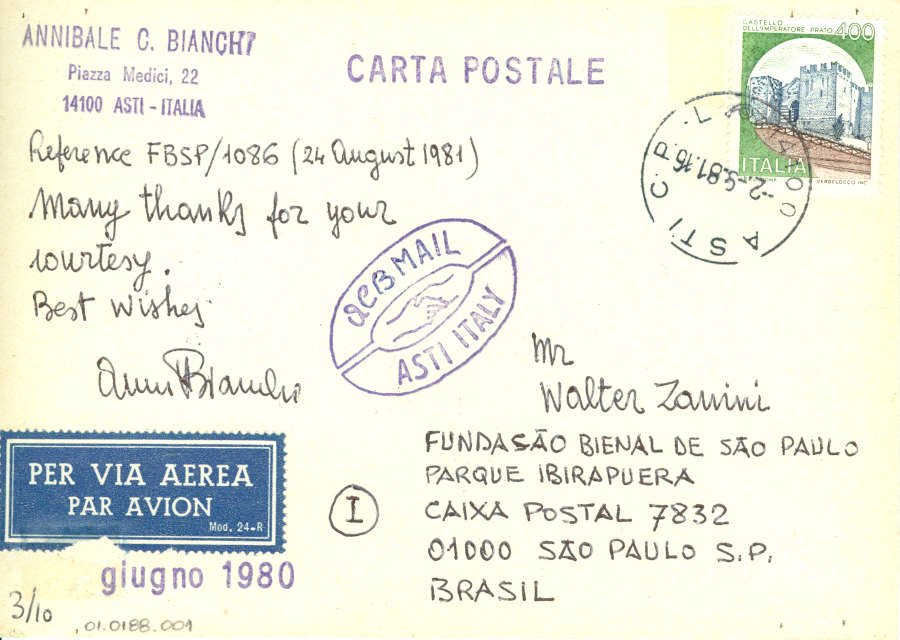 ANNIBALE C. BIANCHI
Piazza Medici, 22
14100 ASTI - ITALIA
CARTA POSTALE
CASTELLO
DELL'IMPERATORE PRATO 400
ITALIA
VERDELOCCO INC.
ASTI C.P. L
-2.-9.81.16
Reference FBSP/1086 (24 August 1981)
Many thanks for your
courtesy.
Best Wishes
ACB MAIL
ASTI ITALY
Mr
Walter Zanini
FUNDASÃO BIENAL DE SÃO PAULO
PARQUE IBIRAPUERA
CAIXA POSTAL 7832
01000 SÃO PAULO S.P.
BRASIL
I
PER VIA AEREA
PAR AVION
Mod. 24-R
giugno 1980
3/10
01.0188.001